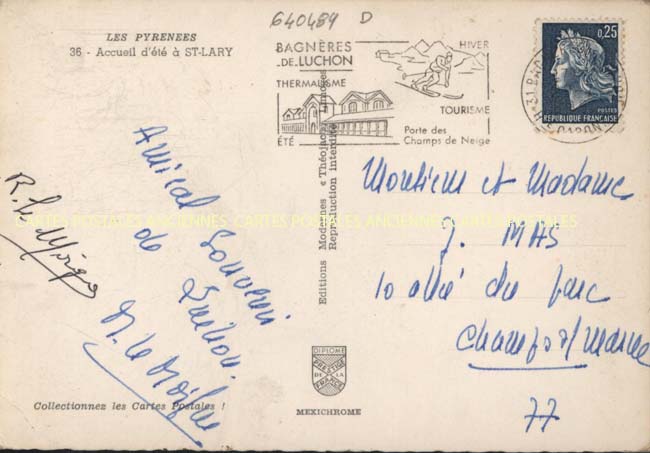 640489 D
LES PYRENEES
36 - Accueil d'été à ST-LARY
BAGNÈRES
-DE-LUCHON
THERMALISME
ÉTÉ
HIVER
TOURISME
Porte des
Champs de Neige
0,25
POSTES
REPUBLIQUE FRANÇAISE
Amical Souvenir
de Luchon.
Editions Modernes « Théojac » Limoges
Reproduction interdite
Monsieur et Madame
J. MAS
10 allée du Parc
Champs s/ Marne
77
CARTES POSTALES ANCIENNES CARTES POSTALES ANCIENNES CARTES POSTALES
DIPLOME
PRESTIGE
DE LA
FRANCE
MEXICHROME
Collectionnez les Cartes Postales !